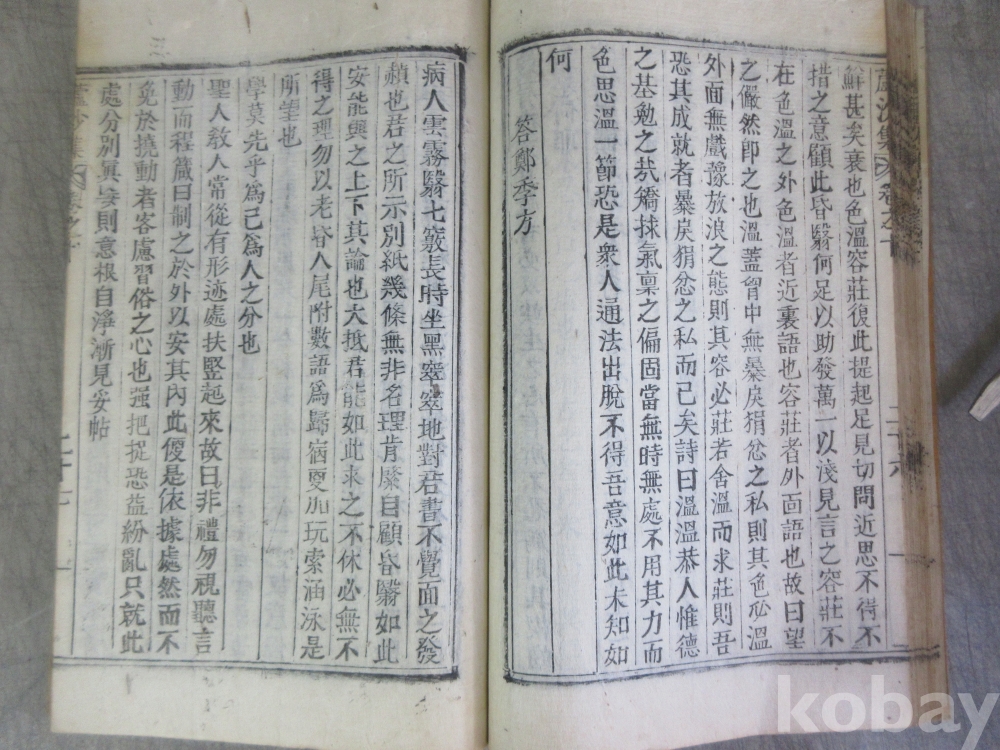 鮮甚矣衰也色溫容莊復此提起足見切問近思不得不
措之意顧此昏翳何足以助發萬一以淺見言之容莊不
在色溫之外色溫者近裏語也容莊者外面語也故曰望
之儼然卽之也溫蓋胷中無暴戾狷忿之私則其色必溫
外面無戲豫放浪之態則其容必莊若舍溫而求莊則吾
恐其成就者暴戾狷忿之私而已矣詩曰溫溫恭人惟德
之基勉之哉矯捄氣稟之偏固當無時無處不用其力而
色思溫一節恐是衆人通法出脫不得吾意如此未知如
何
答鄭季方
病人雲霧翳七竅長時坐黑窣窣地對君書不覺面之發
赬也君之所示別紙幾條無非名理肯綮自顧昏翳如此
安能與之上下其論也大抵君能如此求之不休必無不
得之理勿以老昏人尾附數語爲歸宿更加玩索涵泳是
所望也
學莫先乎爲己爲人之分也
聖人敎人常從有形迹處扶豎起來故曰非禮勿視聽言
動而程箴曰制之於外以安其內此便是依據處然而不
免於撓動者客慮習俗之心也强把捉恐益紛亂只就此
處分別眞妄則意根自淨漸見妥帖
蘆沙集
卷之
二十六
二十七
kobay